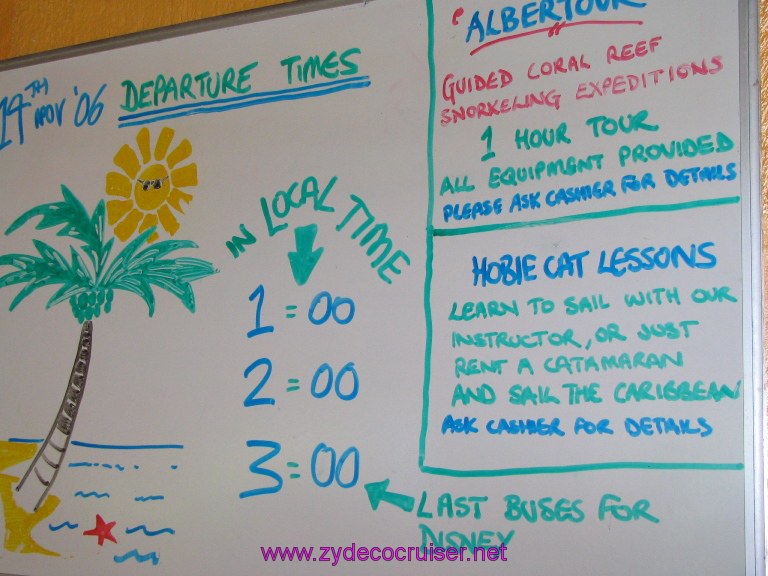 19TH NOV '06 DEPARTURE TIMES
IN LOCAL TIME
1=00
2=00
3=00
LAST BUSES FOR
DISNEY
ALBERTOUR
GUIDED CORAL REEF
SNORKELING EXPEDITIONS
1 HOUR TOUR
ALL EQUIPMENT PROVIDED
PLEASE ASK CASHIER FOR DETAILS
HOBIE CAT LESSONS
LEARN TO SAIL WITH OUR
INSTRUCTOR, OR JUST
RENT A CATAMARAN
AND SAIL THE CARIBBEAN
ASK CASHIER FOR DETAILS
www.zydecocruiser.net